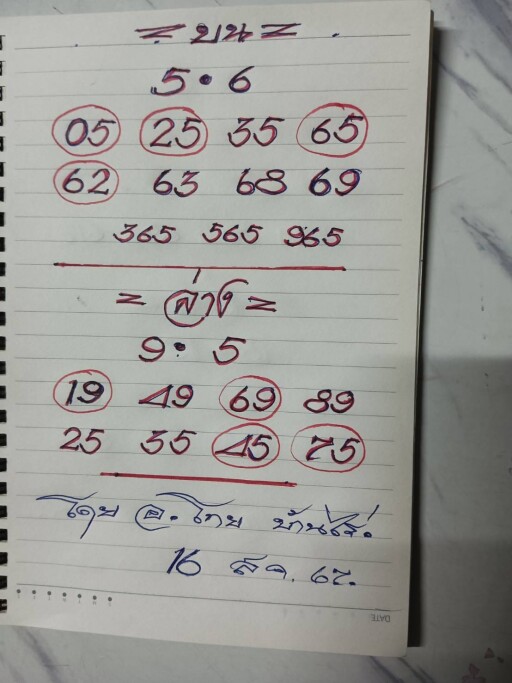 = บน =
5 · 6
05 25 35 65
62 63 68 69
365 565 965
= ล่าง =
9 · 5
19 49 69 89
25 35 45 75
โดย อ. โทย บ้านไร่.
16 ส.ค. 67.
DATE